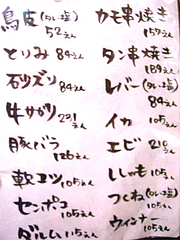 カモ串焼き
157えん
タン串焼き
189えん
レバー(タレ・塩)
84えん
イカ 105えん
エビ 210えん
ししゃも 105えん
つくね(タレ・塩)
105えん
ウィンナー
105えん
鳥皮(タレ・塩)
52えん
とりみ 84えん
砂ズリ
84えん
牛サガリ 231えん
豚バラ
126えん
軟コツ 105えん
センポコ
105えん
ダルム 115えん